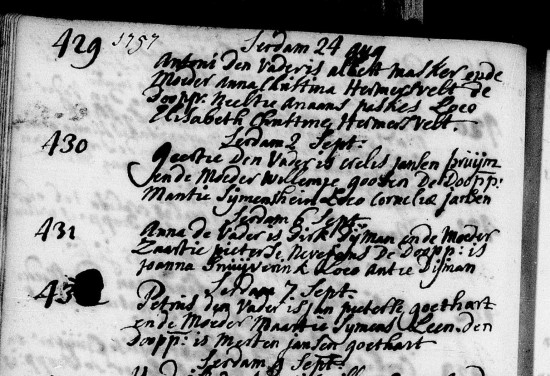 429 1757 Serdam 24 aug
Antoni den Vader is albert masker ende
Moeder anna Christina Hermersvelt de
Doopp: neeltie paskes Loco
Elisabeth Christine Hermersvelt.
430 Serdam 2 Sept:
geertie Den Vader is crelis jansen pruijm
ende Moeder Willemje goosen De Doopp:
Mantie Sijmensthein Loco Cornelia jansen
Serdam 6 Sept.
431 Anna de Vader is Dirk Sijman ende Moeder
Zaartie pieterse De Doopp: is
joanna Loco antie Dijman
43 Serdam 7. Sept.
Petrus den Vader is jan pieterse goethart
ende Moeder Maartie Sijmens Leen. den
Doopp: is Merten jansen goethart
Serdam Sept: